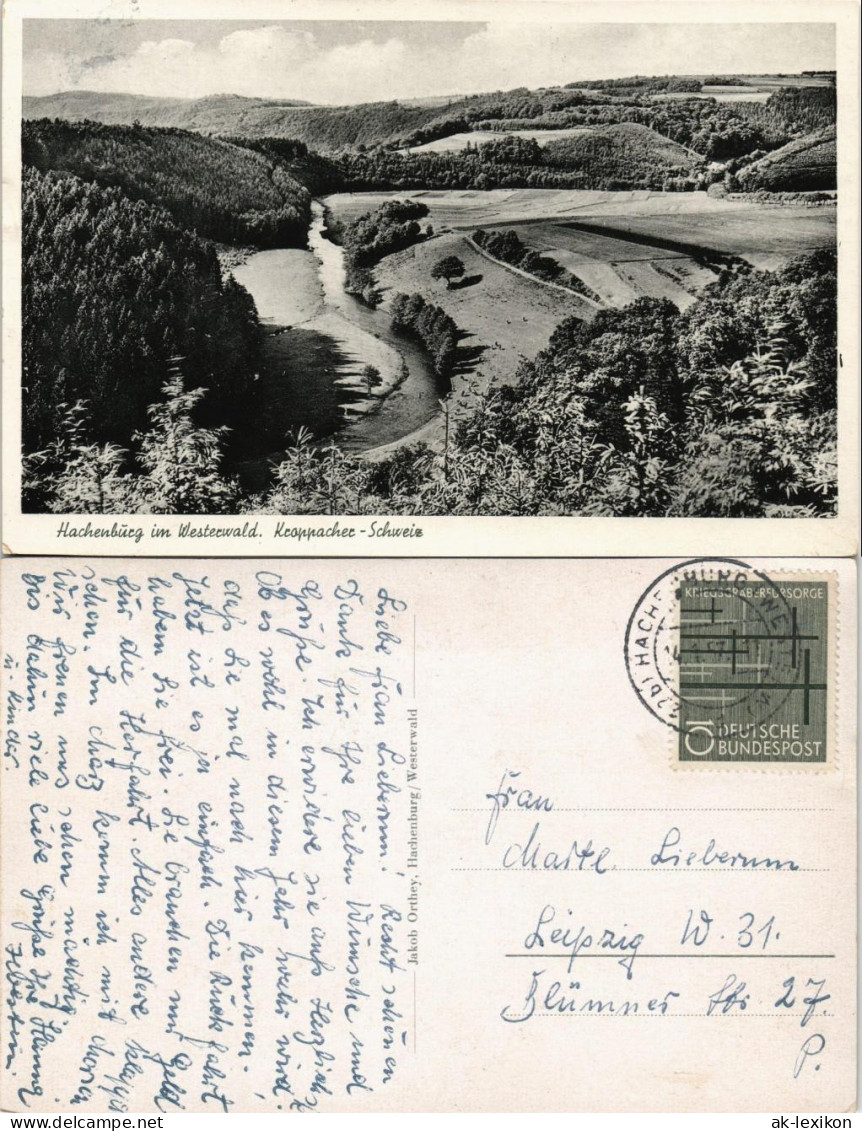 Hachenburg im Westerwald. Kroppacher-Schweiz
Liebe Frau Lieberum! Recht schönen
Dank für Ihre lieben Wünsche und
Grüße. Ich erwidere sie aufs Herzlichste
Ob es wohl in diesem Jahr wahr wird.
daß Sie mal nach hier kommen.
Jetzt ist es ja einfach. Die Rückfahrt
haben Sie frei. Sie brauchen nur Geld
für die Herfahrt. Alles andere
schen. Im März komm ich mit
Wir freuen uns schon mächtig.
Bis dahin viele liebe Grüße Ihre
u. Kinder.
Jakob Orthey, Hachenburg/Westerwald
HACHENBURG (WE
KRIEGSGRÄBERFÜRSORGE
10 DEUTSCHE
BUNDESPOST
Frau
Lieberum
Leipzig W. 31.
Blümner Str. 27.
P.
ak-lexikon